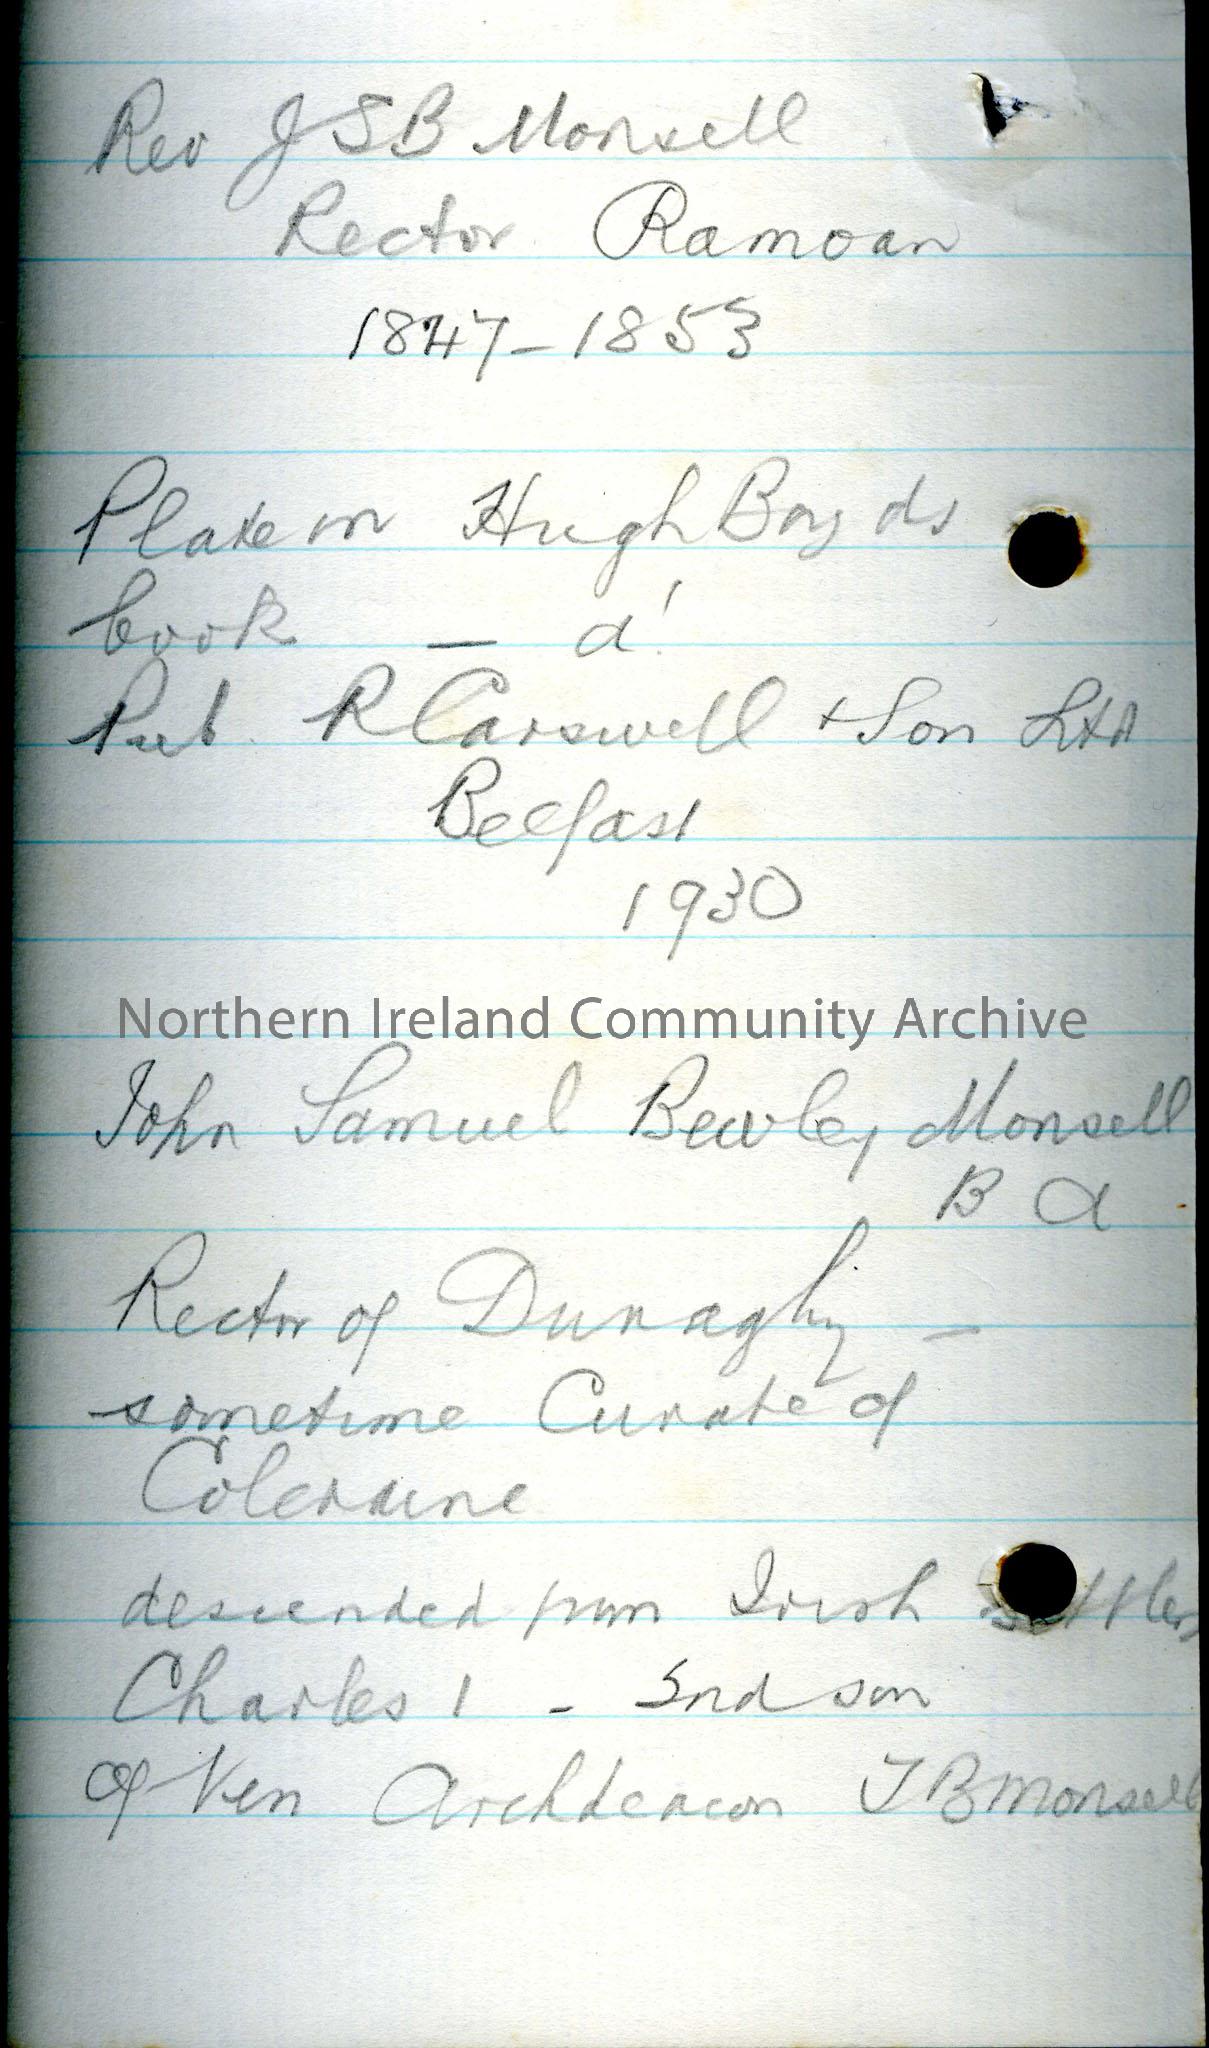 Rev J S B Monsell
Rector Ramoan
1847-1853
Plate in Hugh Boyds
book — a!
Pub R Carswell + Son Ltd
Belfast
1930
Northern Ireland Community Archive
John Samuel Bewley Monsell
B A
Rector of Dunaghy —
sometime Curate of
Coleraine
descended from Irish settlers
Charles 1 - 2nd son
of Ven Archdeacon T B Monsell